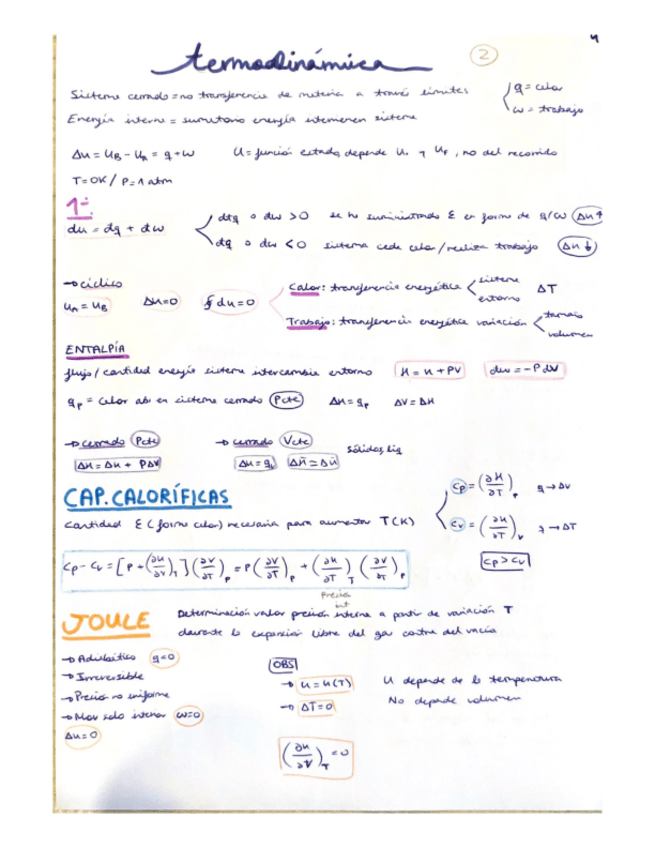 4
termodinámica 2
Sistema cerrado = no transferencia de materia a través límites
q = calor
w = trabajo
Energía interna = sumatorio energía sistema
Δu = u_B - u_A = q + w
U = función estado, depende U. y U_F, no del recorrido
T = 0K / P = 1 atm
1ª:
du = dq + dw
dq o dw > 0 se ha suministrado E en forma de q/w Δu ↑
dq o dw < 0 sistema cede calor/realiza trabajo Δu ↓
→ cíclico
u_A = u_B Δu = 0 ∮ du = 0
Calor: transferencia energética sistema entorno ΔT
Trabajo: transferencia energética variación tamaño volumen
ENTALPÍA
flujo / cantidad energía sistema intercambia entorno H = u + PV dw = -P dV
q_p = calor abs en sistema cerrado Pcte ΔH = q_p ΔV = ΔH
→ cerrado Pcte → cerrado Vcte sólidos, líq
ΔH = Δu + PΔV Δu = q_v ΔH̄ = Δū
CAP. CALORÍFICAS
Cantidad E (forma calor) necesaria para aumentar T (K)
Cp = (∂H/∂T)_P q → ΔV
Cv = (∂u/∂T)_V q → ΔT
Cp > Cv
Cp - Cv = [P + (∂u/∂V)_T] (∂V/∂T)_P = P (∂V/∂T)_P + (∂u/∂V)_T (∂V/∂T)_P
presión int
JOULE
Determinación valor presión interna a partir de variación T
durante la expansión libre del gas contra del vacío
→ Adiabático q = 0
→ Irreversible
→ Presión no uniforme
→ Mov solo interior w = 0
Δu = 0
OBS
→ u = u(T)
→ ΔT = 0
U depende de la temperatura
No depende volumen
(∂u/∂V)_T = 0